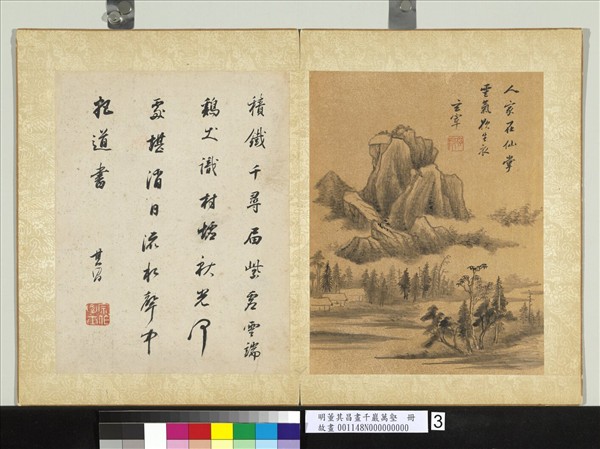 人家在仙掌
雲氣欲生衣
玄宰
積鐵千尋屆紫虛雲端
鷄犬識村墟秋光何
處堪消日流水聲中
把道書
其昌
明董其昌畫千巖萬壑 冊
故畫 001148N000000000
3